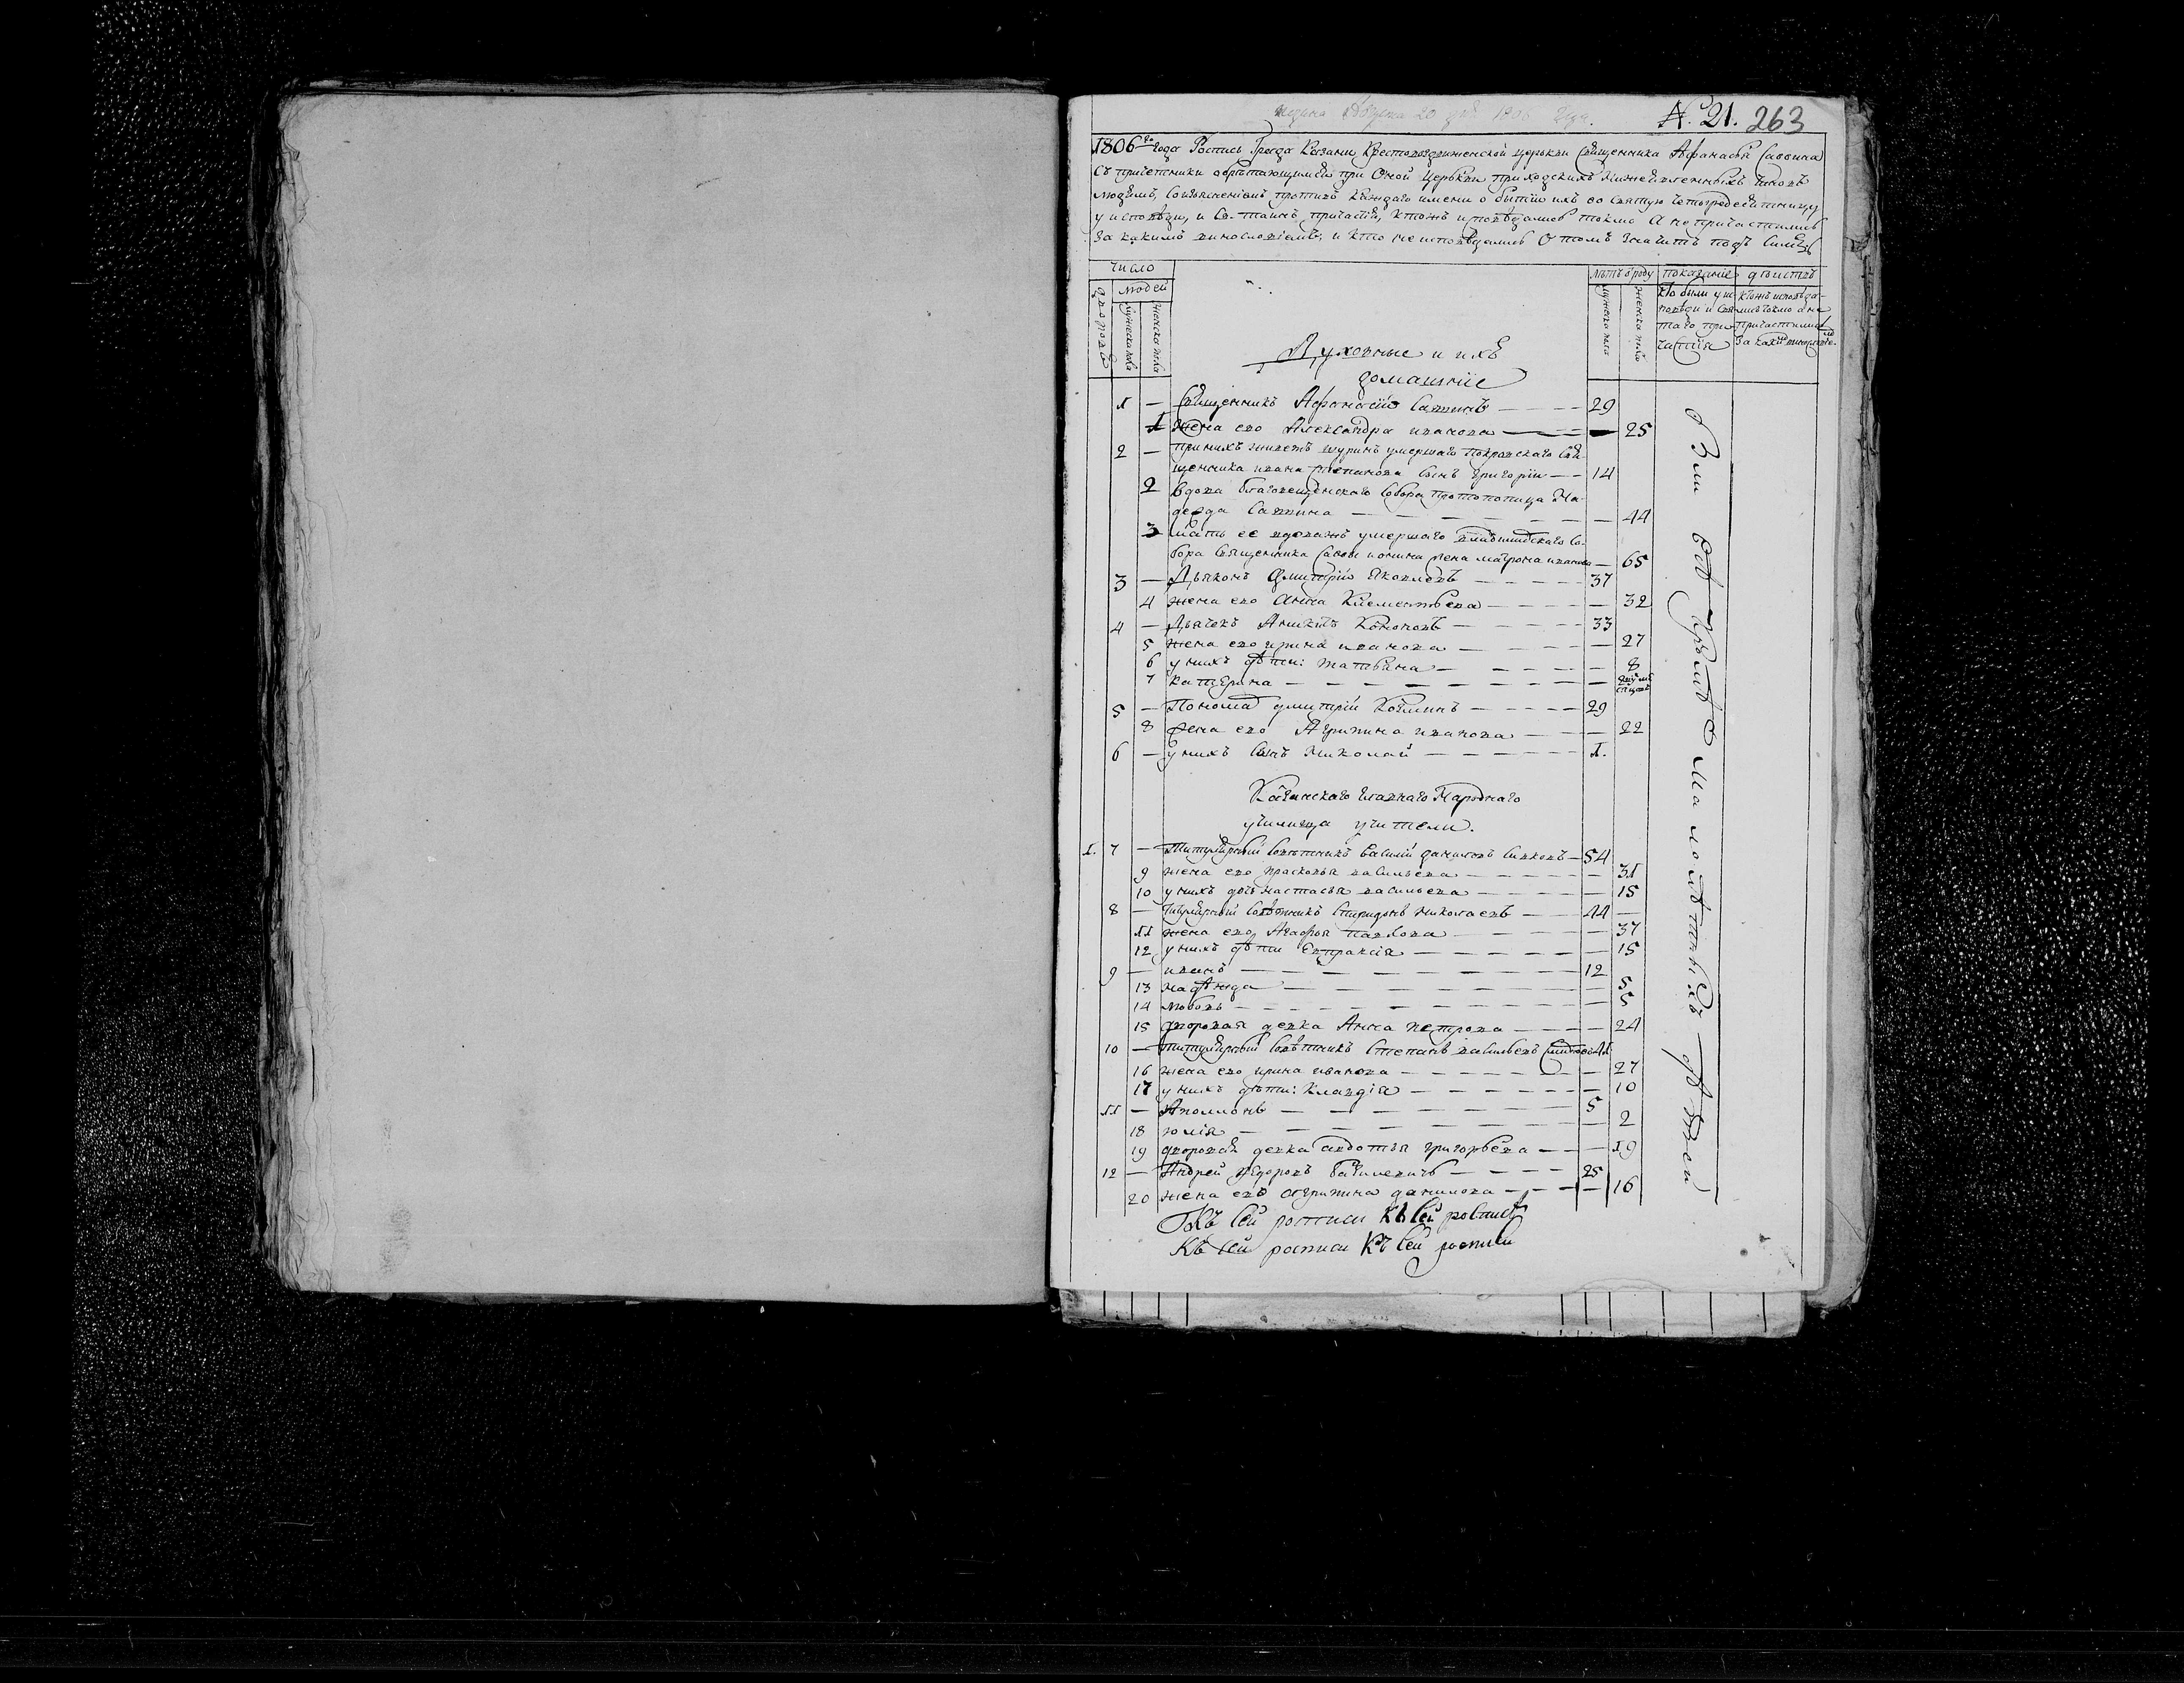 №. 21. 263
1806го года Роспись Града Казани Крестовоздвиженской церькви священника Афанасья Саввина
съ причетники обрѣтающимися при оной церькви приходскихъ нижеявленныхъ чиновъ
людѣмъ, со изъясненіемъ противъ каждаго имени о бытіи ихъ во святую четыредесятницу
у исповѣди, и св. таинъ причастія, и ктожъ исповѣдались токмо а не причастились
за какимъ винословіемъ, и кто не исповѣдались о томъ значитъ подъ симъ
число
людей
дворовъ
мужеска пола
женска пола
лѣтъ отроду
мужеска пола
женска пола
показаніе
дѣйствъ
кто были у ис-
повѣди и свя-
таго при-
частія
ктожъ исповѣда-
лись токмо а не
причастились
Духовные и ихъ
домашніе
1 — Священникъ Афонасій Саввинъ — 29
1 жена его Александра иванова — 25
2 — при нихъ живетъ шуринъ умершаго Покровскаго свя-
щенника ивана степанова сынъ Григорій — 14
2 вдова благовещенскаго собора протопопица На-
дежда Саввина — 44
3 мать ее вдова жъ умершаго владимирскаго со-
бора священника Саввы ионина жена матрона иванова — 65
3 — Дьяконъ Дмитрій Яковлевъ — 37
4 жена его Анна Клементьева — 32
4 — Дьячекъ Аникитъ Кононовъ — 33
5 жена его ирина иванова — 27
6 у нихъ дѣти: татьяна — 8
7 катерина —
5 — Пономарь дмитрій Козминъ — 29
8 жена его Агрипина иванова — 22
6 — у нихъ сынъ Николай — 1.
Казанскаго главнаго Народнаго
училища учители.
1. 7 — Титулярный совѣтникъ василій данилов — 54
9 жена его прасковья васильева — 31
10 у нихъ дочь настасья васильева — 15
8 — Титулярный совѣтникъ Спиридонъ Николаевъ — 44 —
11 жена его Агафья павлова — 37
12 у нихъ дѣти Евпраксія — 15
9 — иванъ — 12
13 надѣжда — 5
14 любовь — 5
15 дворовая девка Анна петрова — 24
10 — Титулярный совѣтникъ Степанъ васильевъ — 41
16 жена его ирина иванова — 27
17 у нихъ дѣти: Клавдія — 10
11 — Аполлонъ — 5
18 юлія — 2
19 дворовая девка авдотья григорьева — 19
12 — Андрей федоровъ — 25
20 жена его агрипина данилова — 16
Къ сей росписи Къ сей росписи
Къ сей росписи Къ сей росписи
Были всѣ кромѣ малолѣтныхъ дѣтей